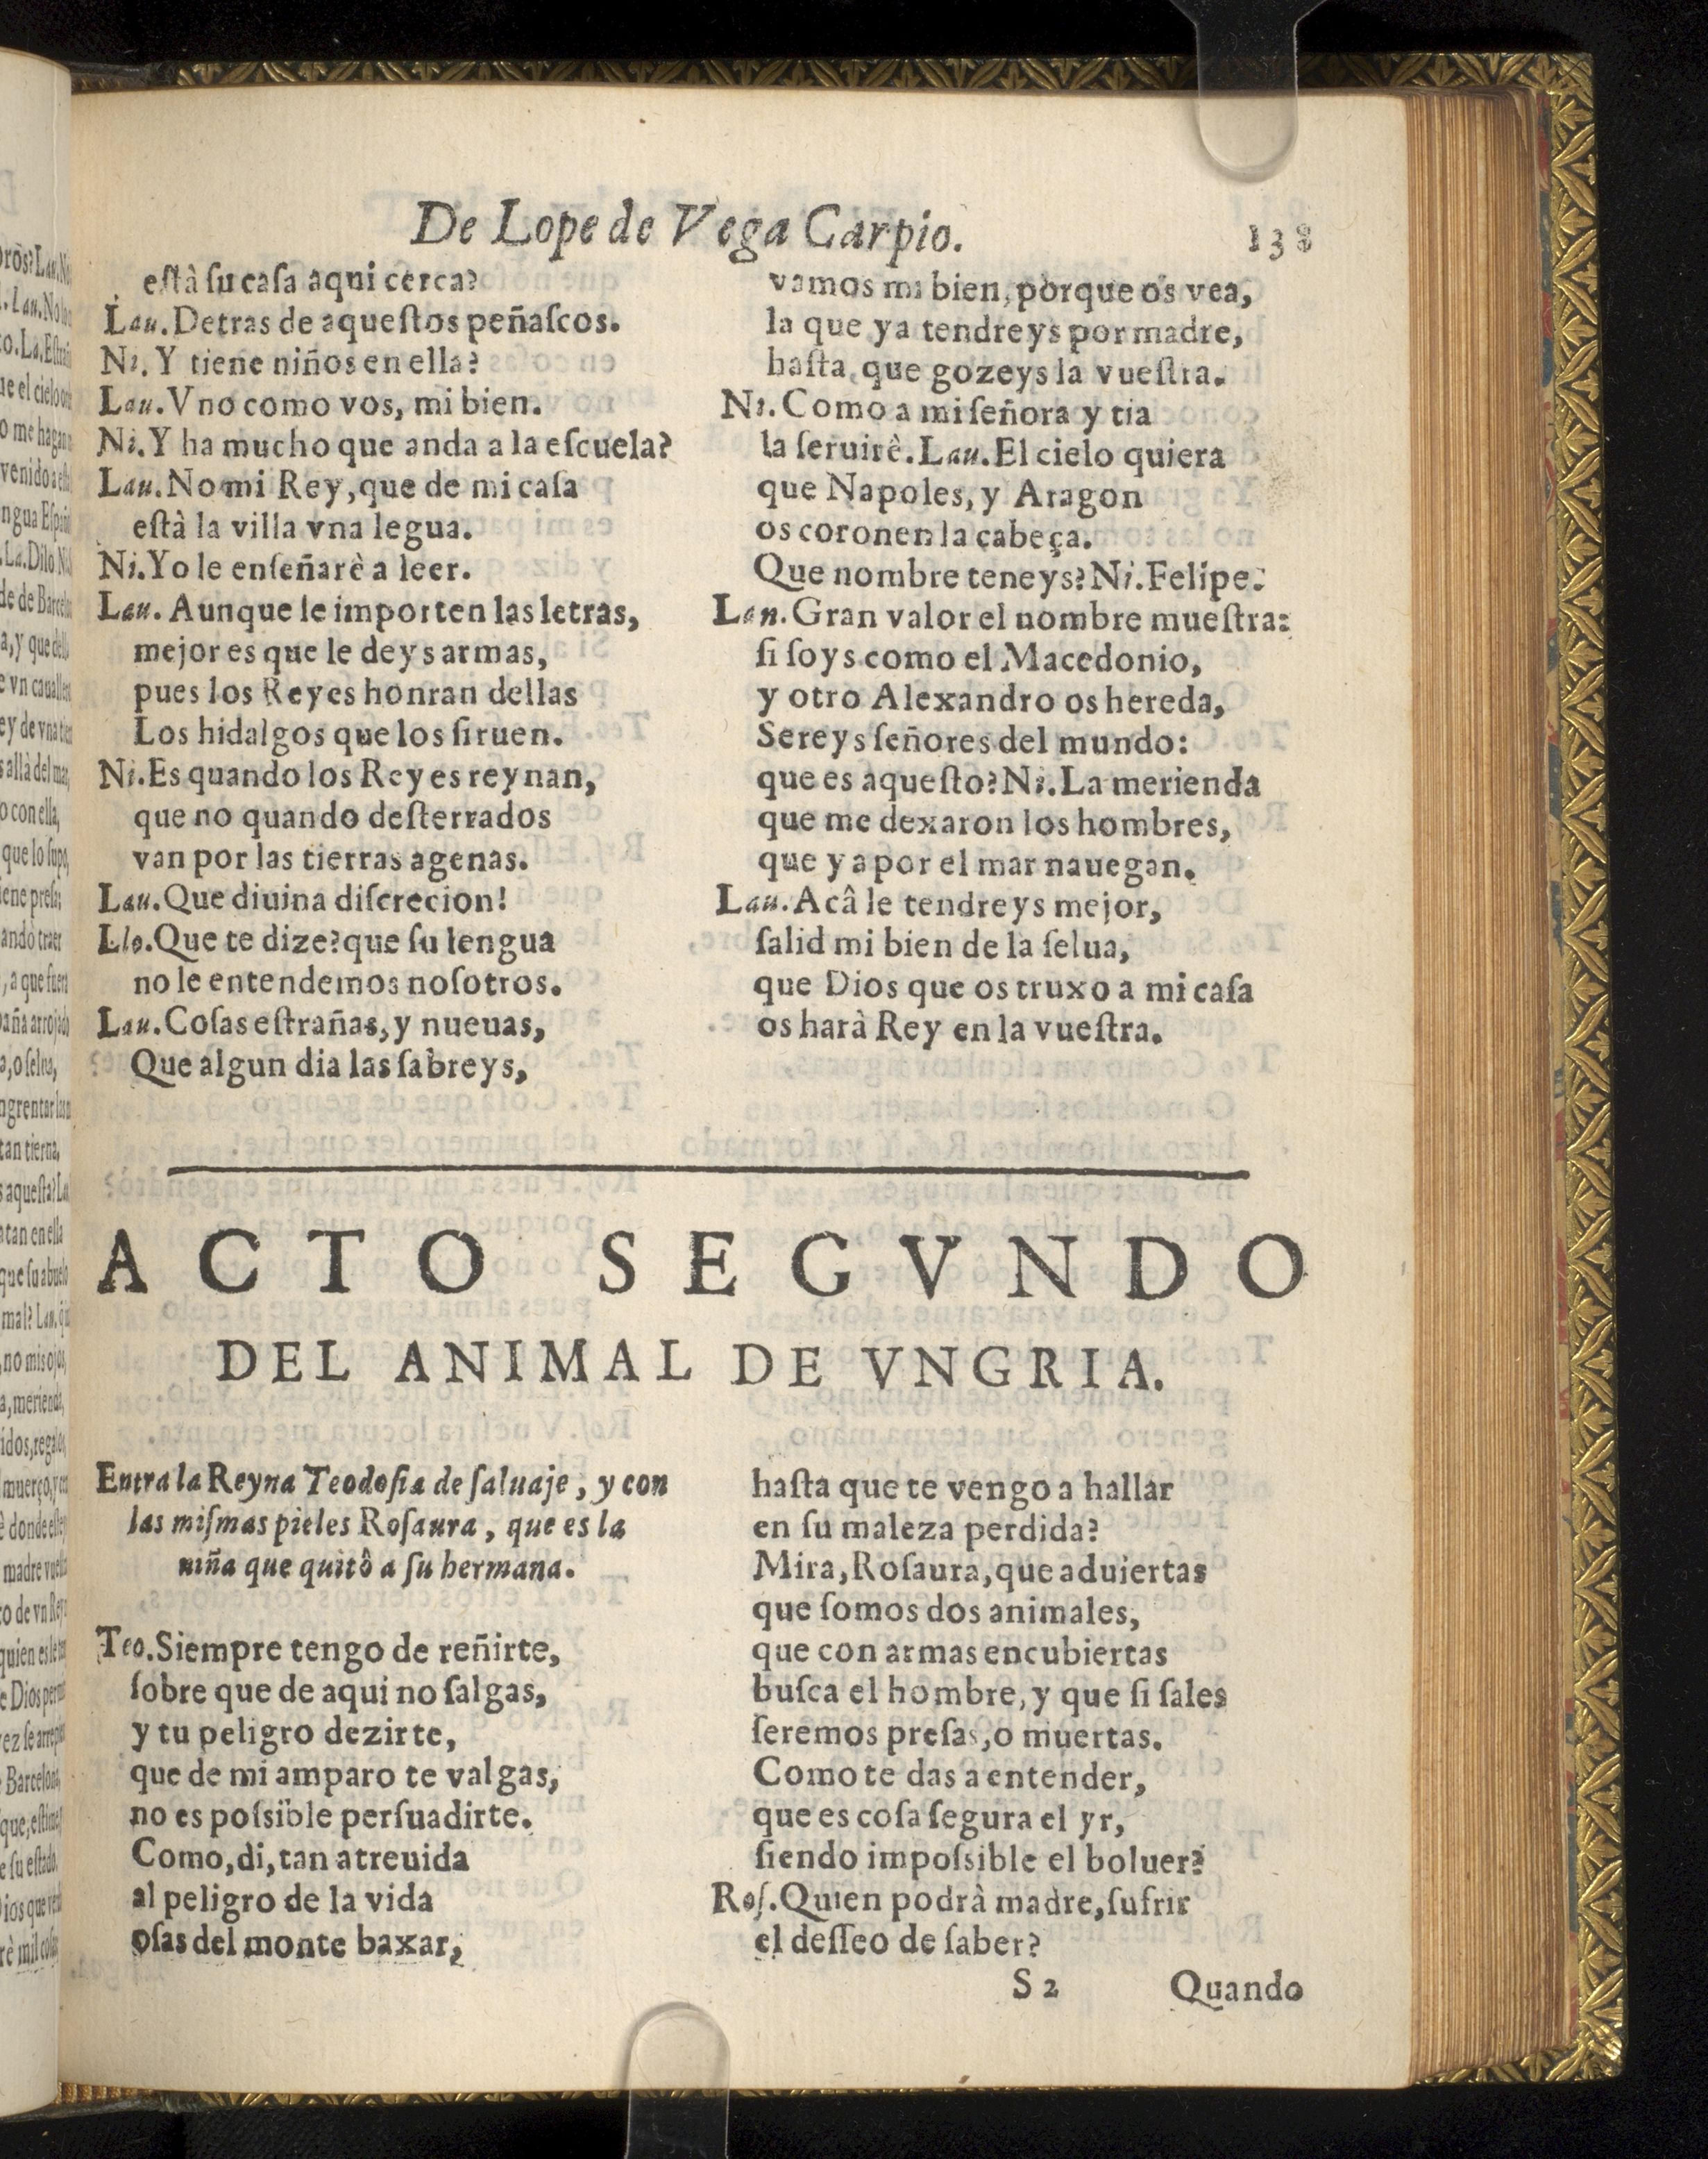 De Lope de Vega Carpio.
138
està ſu caſa aqui cerca?
Lau. Detras de aqueſtos peñaſcos.
Ni. Y tiene niños en ella?
Lau. Vno como vos, mi bien.
Ni. Y ha mucho que anda a la eſcuela?
Lau. No mi Rey, que de mi caſa
eſtà la villa vna legua.
Ni. Yo le enſeñarè a leer.
Lau. Aunque le importen las letras,
mejor es que le deys armas,
pues los Reyes honran dellas
Los hidalgos que los ſiruen.
Ni. Es quando los Reyes reynan,
que no quando deſterrados
van por las tierras agenas.
Lau. Que diuina diſcrecion!
Llo. Que te dize? que ſu lengua
no le entendemos noſotros.
Lau. Coſas eſtrañas, y nueuas,
Que algun dia las ſabreys,
vamos mi bien, porque os vea,
la que ya tendreys por madre,
haſta que gozeys la vueſtra.
Ni. Como a mi ſeñora y tia
la ſeruirê. Lau. El cielo quiera
que Napoles, y Aragon
os coronen la cabeça.
Que nombre teneys? Ni. Felipe.
Lan. Gran valor el nombre mueſtra:
ſi ſoys como el Macedonio,
y otro Alexandro os hereda,
Sereys ſeñores del mundo:
que es aqueſto? Ni. La merienda
que me dexaron los hombres,
que ya por el mar nauegan.
Lau. Acâ le tendreys mejor,
ſalid mi bien de la ſelua,
que Dios que os truxo a mi caſa
os harà Rey en la vueſtra.
ACTO SEGVNDO
DEL ANIMAL DE VNGRIA.
Entra la Reyna Teodoſia de ſaluaje, y con
las miſmas pieles Roſaura, que es la
niña que quitô a ſu hermana.
Teo. Siempre tengo de reñirte,
ſobre que de aqui no ſalgas,
y tu peligro dezirte,
que de mi amparo te valgas,
no es poſsible perſuadirte.
Como, di, tan atreuida
al peligro de la vida
oſas del monte baxar,
haſta que te vengo a hallar
en ſu maleza perdida?
Mira, Roſaura, que aduiertas
que ſomos dos animales,
que con armas encubiertas
buſca el hombre, y que ſi ſales
ſeremos preſas, o muertas.
Como te das a entender,
que es coſa ſegura el yr,
ſiendo impoſsible el boluer?
Roſ. Quien podrà madre, ſufrir
el deſſeo de ſaber?
S 2
Quando